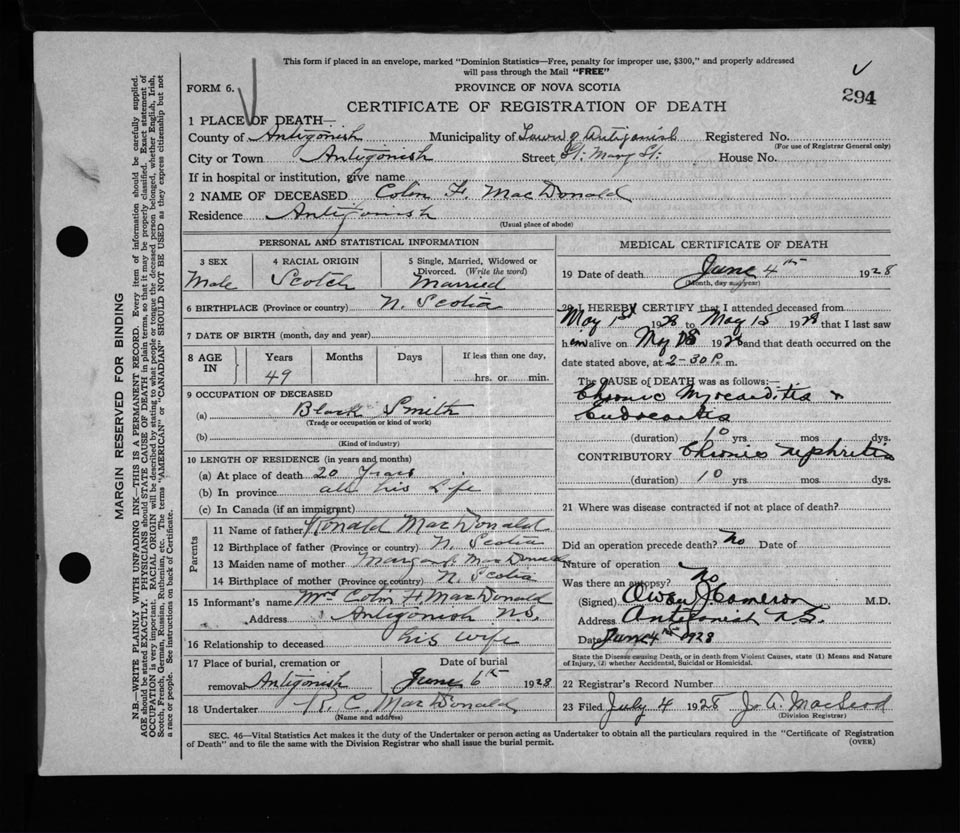 This form if placed in an envelope, marked "Dominion Statistics—Free, penalty for improper use, $300," and properly addressed
will pass through the Mail "FREE"
FORM 6.
PROVINCE OF NOVA SCOTIA
294
CERTIFICATE OF REGISTRATION OF DEATH
1 PLACE OF DEATH—
County of Antigonish Municipality of Town of Antigonish Registered No.
(For use of Registrar General only)
City or Town Antigonish Street St. Mary St. House No.
If in hospital or institution, give name
2 NAME OF DECEASED Colin F. MacDonald
Residence Antigonish
(Usual place of abode)
PERSONAL AND STATISTICAL INFORMATION
3 SEX 4 RACIAL ORIGIN 5 Single, Married, Widowed or
Divorced. (Write the word)
Male Scotch Married
6 BIRTHPLACE (Province or country) N. Scotia
7 DATE OF BIRTH (month, day and year)
8 AGE IN Years Months Days If less than one day,
49 hrs. or min.
9 OCCUPATION OF DECEASED
(a) Black Smith
(Trade or occupation or kind of work)
(b)
(Kind of industry)
10 LENGTH OF RESIDENCE (in years and months)
(a) At place of death 20 Years
(b) In province all his Life
(c) In Canada (if an immigrant)
Parents
11 Name of father Ronald MacDonald
12 Birthplace of father (Province or country) N. Scotia
13 Maiden name of mother Margaret MacDonald
14 Birthplace of mother (Province or country) N. Scotia
15 Informant's name Mrs Colin F. MacDonald
Address Antigonish N.S.
16 Relationship to deceased his wife
17 Place of burial, cremation or Date of burial
removal Antigonish June 6th 1928
18 Undertaker C. MacDonald
(Name and address)
MEDICAL CERTIFICATE OF DEATH
19 Date of death June 4th 1928
(Month, day and year)
20 I HEREBY CERTIFY that I attended deceased from
May 1st 1928 to May 15 1928 that I last saw
him alive on May 1928 and that death occurred on the
date stated above, at 2-30 P. m.
The CAUSE of DEATH was as follows:—
Chronic Myocarditis &
(duration) 10 yrs. mos. dys.
CONTRIBUTORY Chronic nephritis
(duration) 10 yrs. mos. dys.
21 Where was disease contracted if not at place of death?
Did an operation precede death? No Date of
Nature of operation
Was there an autopsy? No
(Signed) Owen J Cameron M.D.
Address Antigonish N.S.
Date June 4th 1928
State the Disease causing Death, or in death from Violent Causes, state (1) Means and Nature
of Injury, (2) whether Accidental, Suicidal or Homicidal.
22 Registrar's Record Number
23 Filed July 4 1928 Jo. A. MacLeod
(Division Registrar)
SEC. 46—Vital Statistics Act makes it the duty of the Undertaker or person acting as Undertaker to obtain all the particulars required in the "Certificate of Registration
of Death" and to file the same with the Division Registrar who shall issue the burial permit.
(OVER)
MARGIN RESERVED FOR BINDING
N.B.—WRITE PLAINLY WITH UNFADING INK—THIS IS A PERMANENT RECORD. Every item of information should be carefully supplied.
AGE should be stated EXACTLY. PHYSICIANS should STATE CAUSE OF DEATH in plain terms, so that it may be properly classified. Exact statement of
OCCUPATION is very important. RACIAL ORIGIN will be described by stating to what people or tongue the deceased person belonged, whether English, Irish,
Scotch, French, German, Russian, Ruthenian, etc. The terms "AMERICAN" or "CANADIAN" SHOULD NOT BE USED as they express citizenship but not
a race or people. See instructions on back of Certificate.